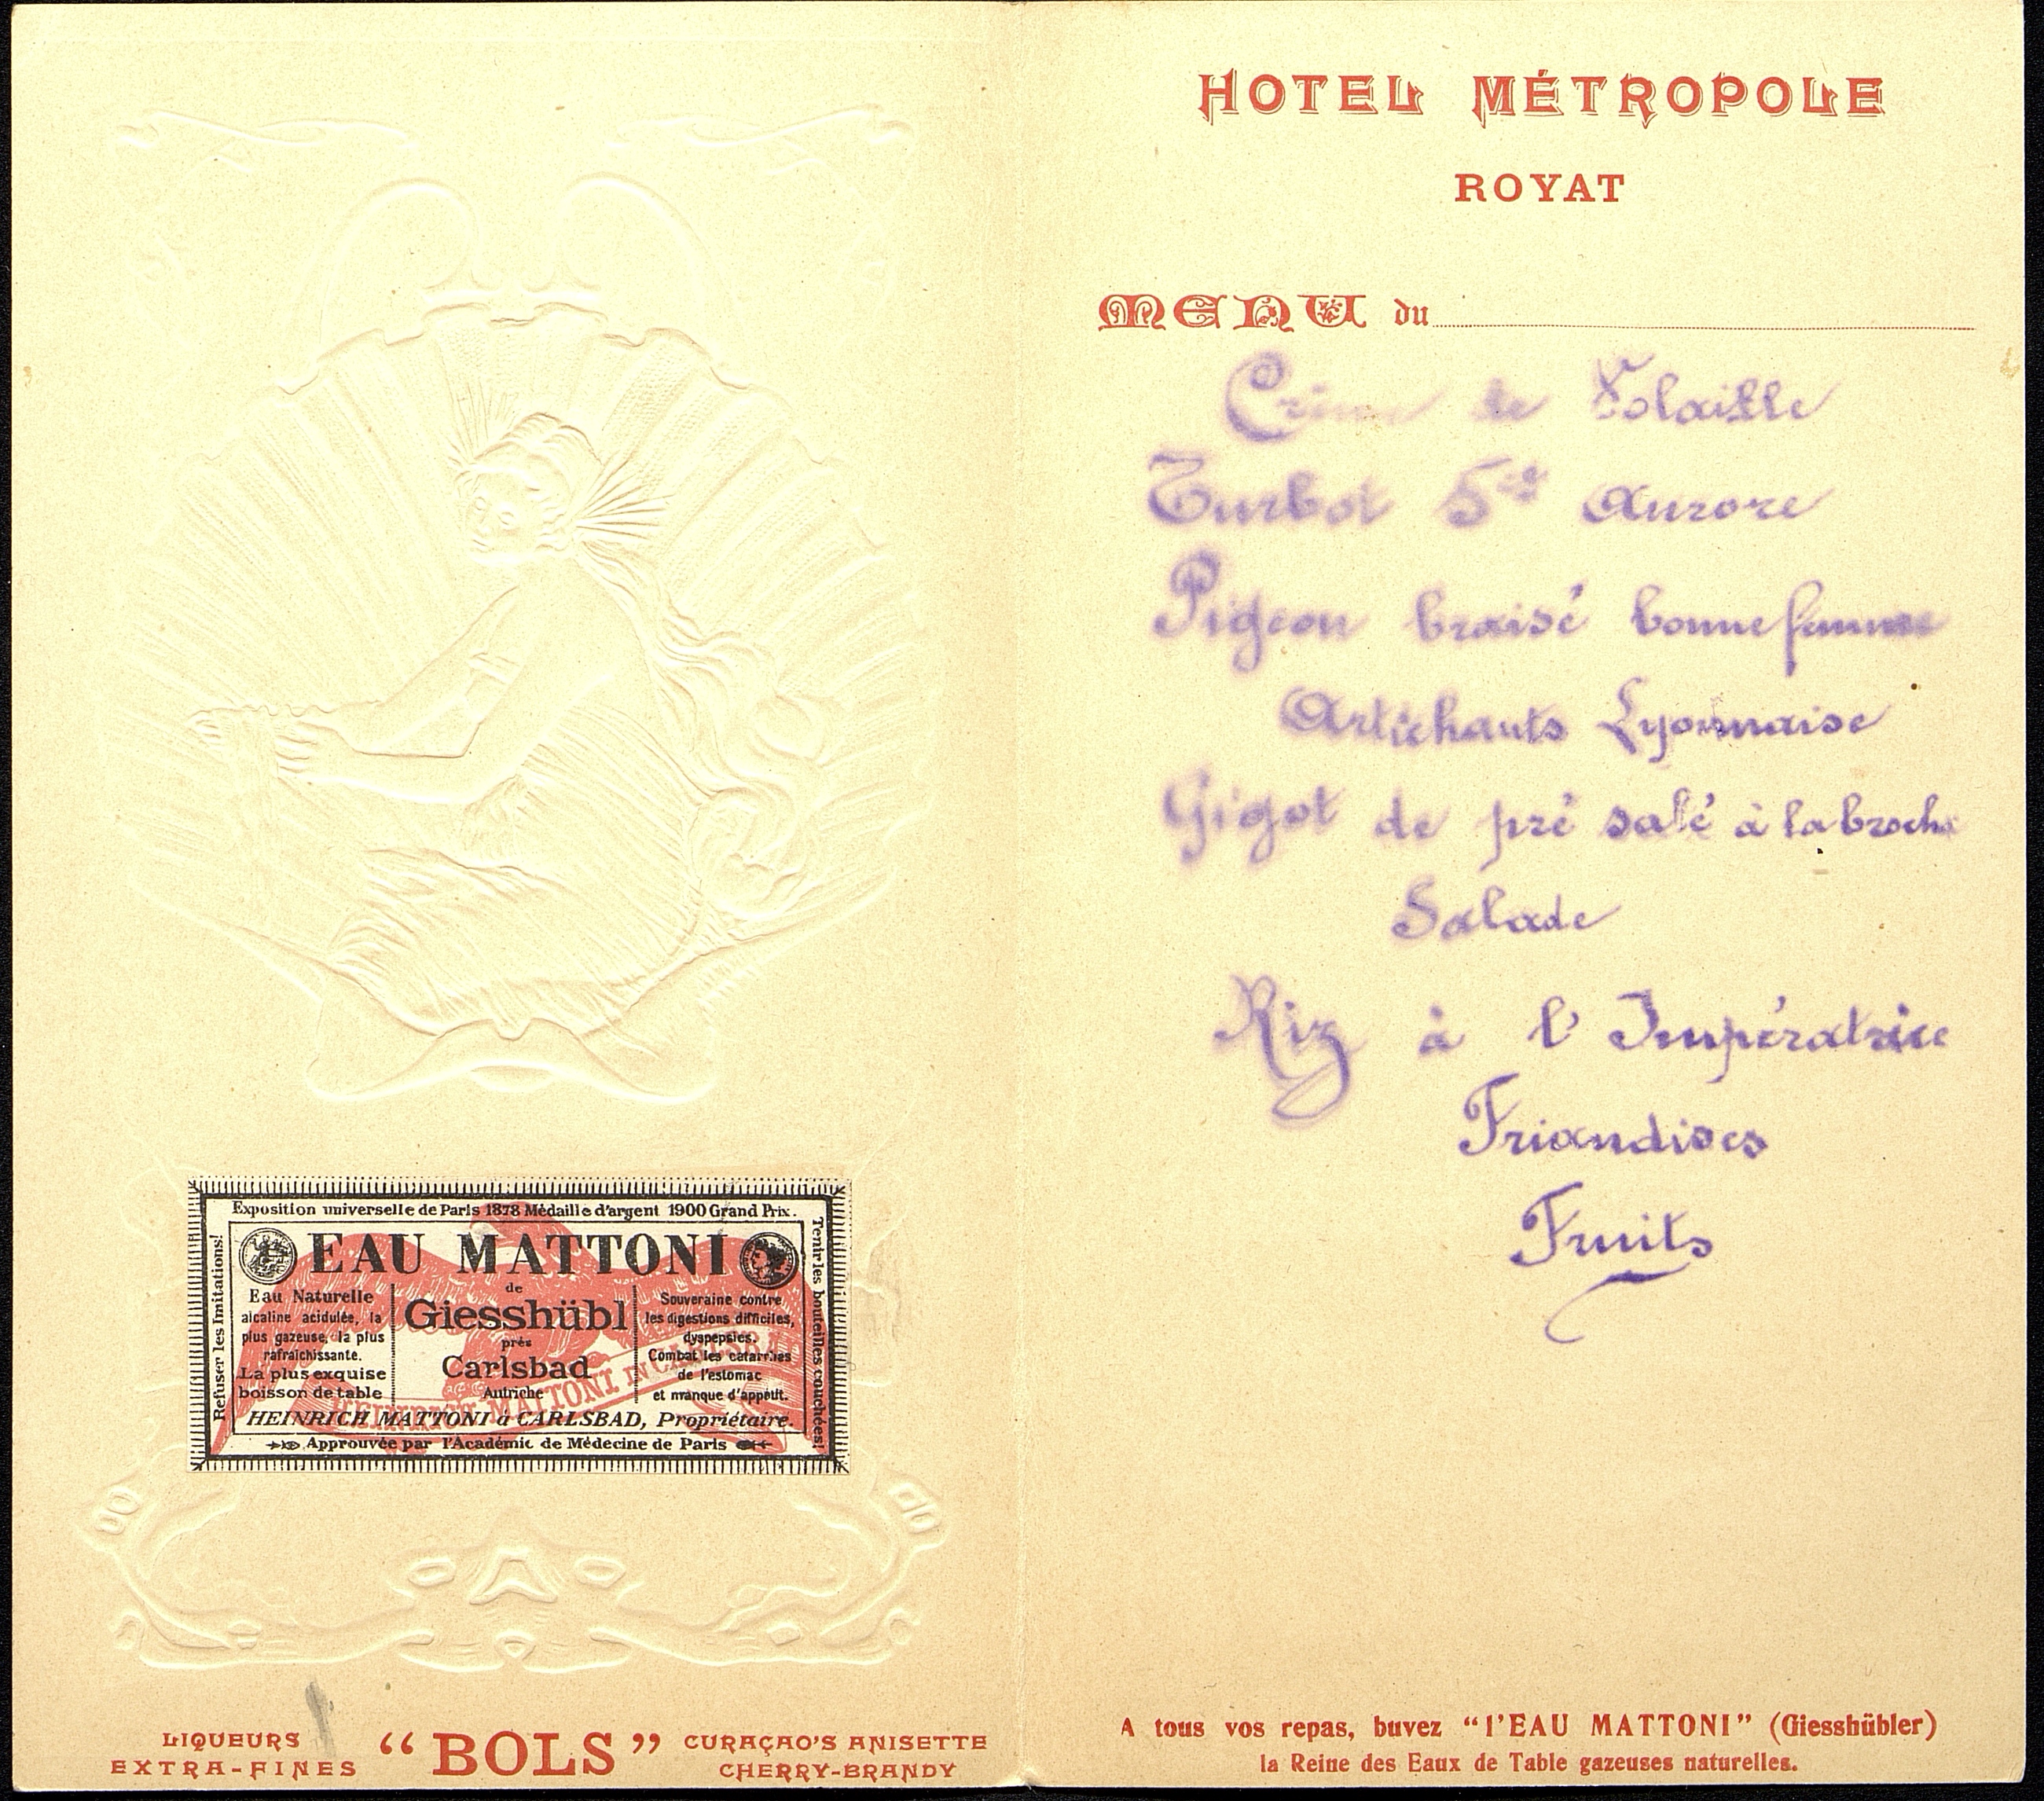 Exposition universelle de Paris 1878 Médaille d'argent 1900 Grand Prix.
Refuser les Imitations!
EAU MATTONI
Eau Naturelle
alcaline acidulée, la
plus gazeuse, la plus
rafraîchissante.
La plus exquise
boisson de table
de
Giesshübl
près
Carlsbad
Autriche
Souveraine contre
les digestions difficiles,
dyspepsies.
Combat les catarrhes
de l'estomac
et manque d'appétit.
Tenir les bouteilles couchées!
HEINRICH MATTONI IN CARLSBAD
HEINRICH MATTONI à CARLSBAD, Propriétaire.
Approuvée par l'Académie de Médecine de Paris
LIQUEURS
EXTRA-FINES
“BOLS”
CURAÇAO'S ANISETTE
CHERRY-BRANDY
HOTEL MÉTROPOLE
ROYAT
MENU du
Crème de Volaille
Turbot Sce Aurore
Pigeon braisé bonne femme
Artichauts Lyonnaise
Gigot de pré salé à la broche
Salade
Riz à l'Impératrice
Friandises
Fruits
A tous vos repas, buvez “l'EAU MATTONI” (Giesshübler)
la Reine des Eaux de Table gazeuses naturelles.